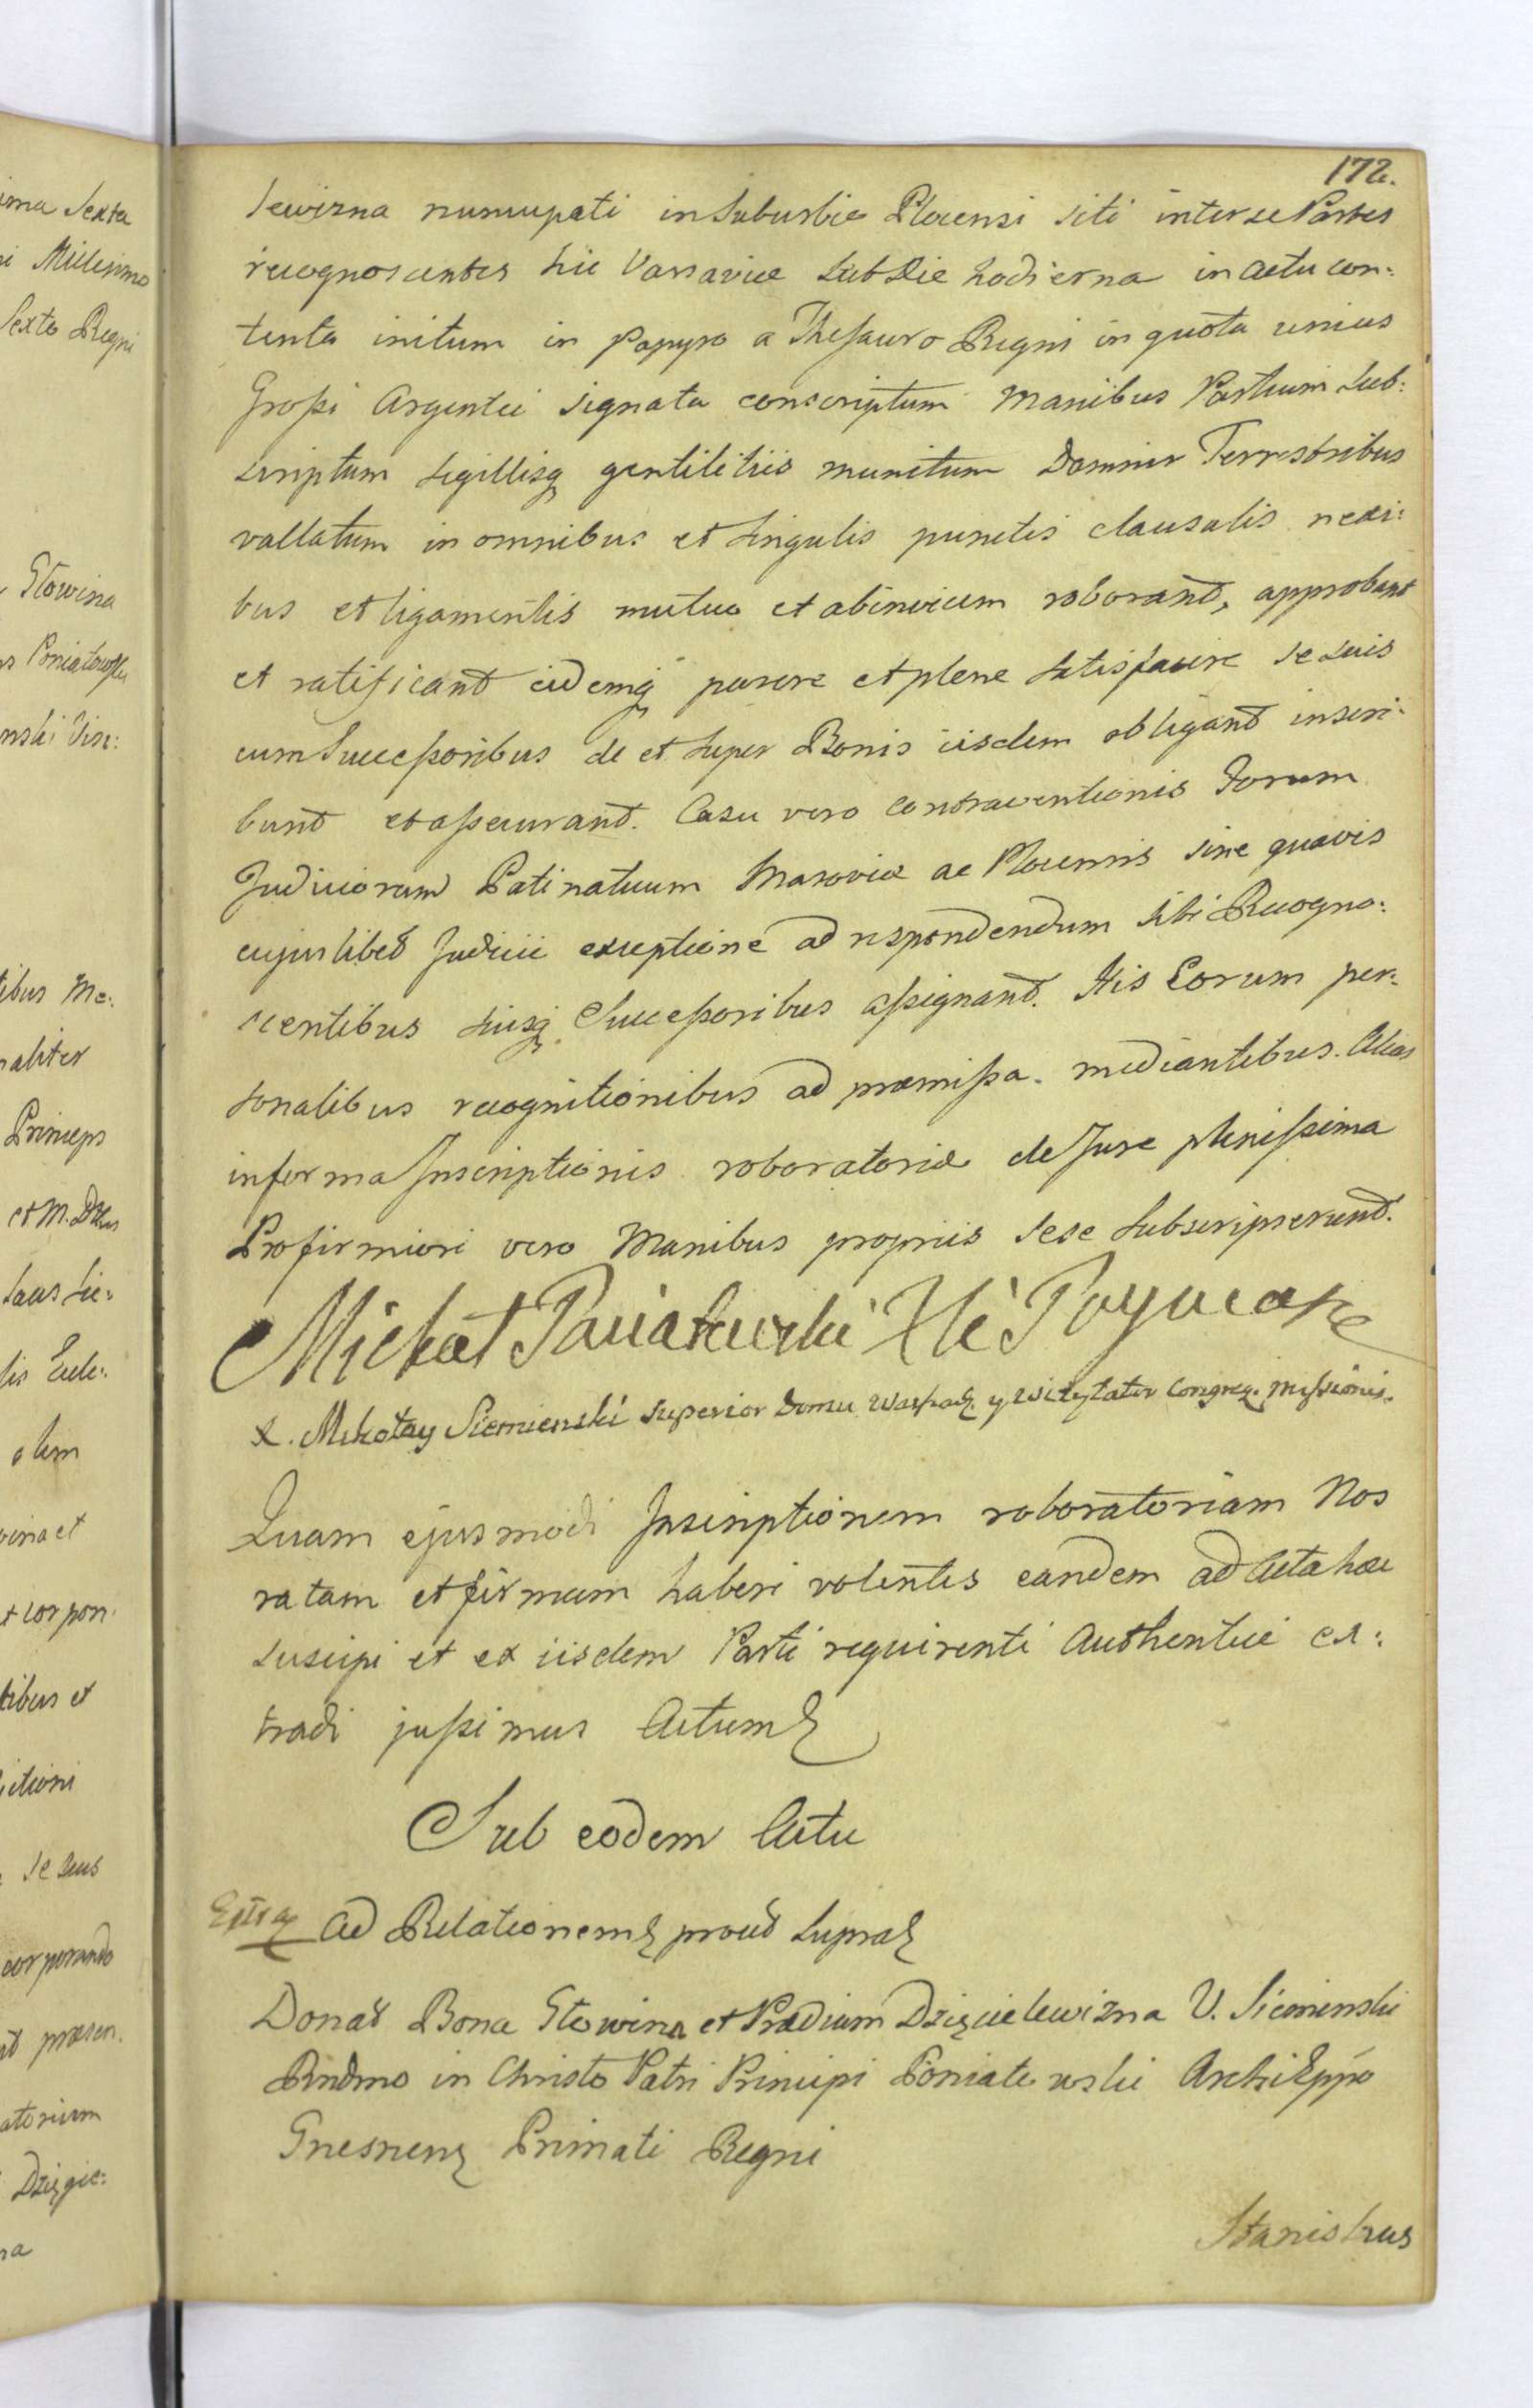 172.
lewizna nuncupati in Suburbio Plocensi siti inter se Partes
recognoscentes hic Varsaviæ sub Die hodierna in actu con:
tenta initum in Papyro a Thesauro Regni in quota unius
Grossi Argentei signata conscriptum Manibus Partium sub:
scriptum sigillisq gentilitiis munitum Damnis Terrestribus
vallatum in omnibus et singulis punctis clausulis nexi:
bus et ligamentis mutuo et abinvicem roborant, approbant
et ratificant eidemq parere et plene satisfacere se suis
cum Successoribus de et super Bonis iisdem obligant inscri:
bunt et assecurant. Casu vero contraventionis Forum
Judiciorum Palatinatuum Masoviæ ac Plocensis sine quavis
cujuslibet Judicii exceptione ad respondendum sibi Recogno:
scentibus suisq Successoribus assignant. His Eorum per:
sonalibus recognitionibus ad præmissa mediantibus. Alias
in forma Inscriptionis roboratoriæ de Jure plenissima
Pro firmiori vero Manibus propriis sese subscripserunt.
Michał Poniatowski Xże Prymas
X. Mikołay Siemienski Superior Domu Warszaq. y Wizytator Congreg. Missionis.
Quam ejusmodi Inscriptionem roboratoriam Nos
ratam et firmam haberi volentes eandem ad Acta hæc
suscipi et ex iisdem Parti requirenti Authentice ex:
tradi jussimus Actum
Sub eodem Actu
Ad Relationem prout supra
Donat Bona Słowina et Prædium Dzięcielewizna V. Siemienski
Rndmo in Christo Patri Principi Poniatowski ArchiEppo
Gnesnen Primati Regni
Stanislaus
ima Sexta
i Millesimo
Sexto Regni
Słowina
s Poniatowski
nski Vise:
tibus Me:
naliter
Princeps
et M. Dttus
laus Sie:
lis Eccle:
olim
vina et
t corpor:
tibus et
ctioni
se suis
corporando
præsen.
atorium
Dzięcie:
na